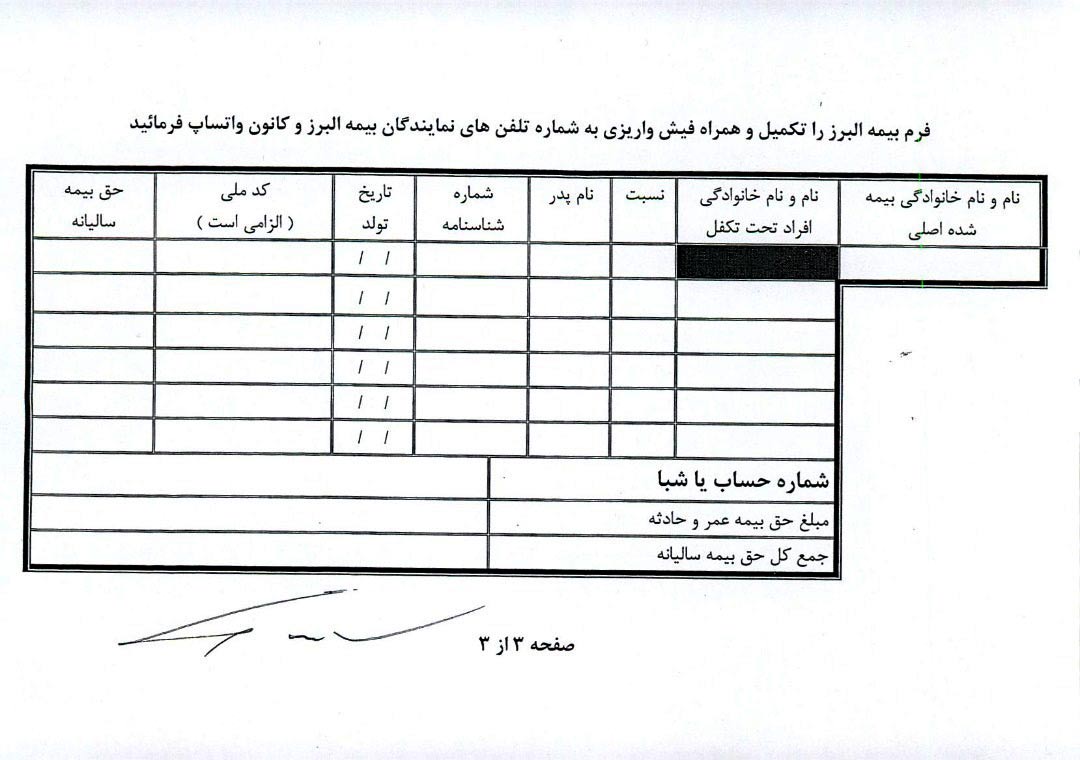 فرم بیمه البرز را تکمیل و همراه فیش واریزی به شماره تلفن های نمایندگان بیمه البرز و کانون واتساپ فرمائید
نام و نام خانوادگی بیمه شده اصلی
نام و نام خانوادگی افراد تحت تکفل
نسبت
نام پدر
شماره شناسنامه
تاریخ تولد
کد ملی ( الزامی است )
حق بیمه سالیانه
/ /
/ /
/ /
/ /
/ /
/ /
شماره حساب یا شبا
مبلغ حق بیمه عمر و حادثه
جمع کل حق بیمه سالیانه
صفحه ۳ از ۳